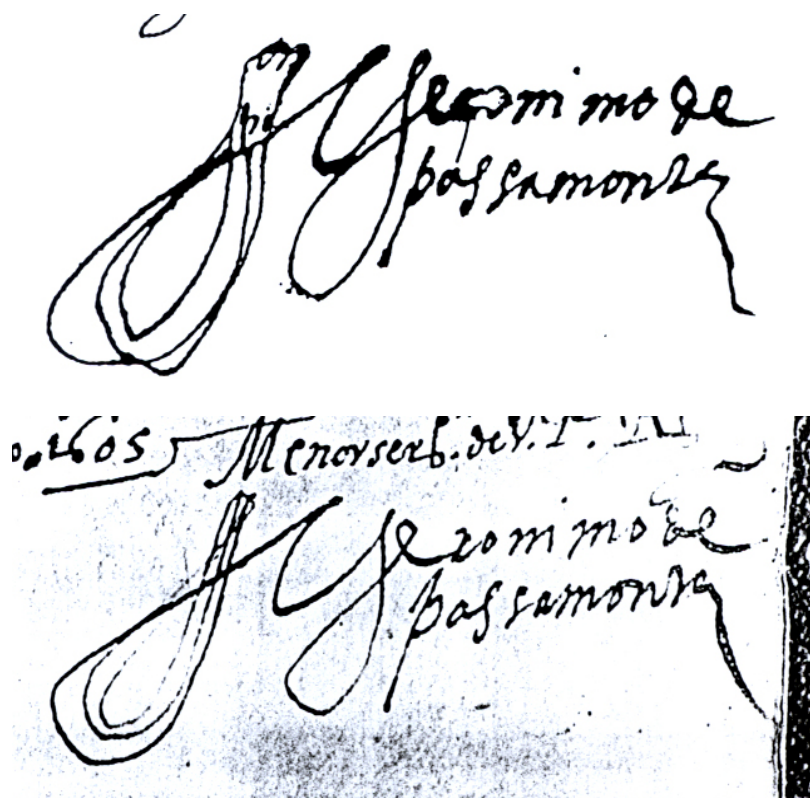 Geronimo de
passamonte
1605 Menor serb. de V. P.
Geronimo de
passamonte